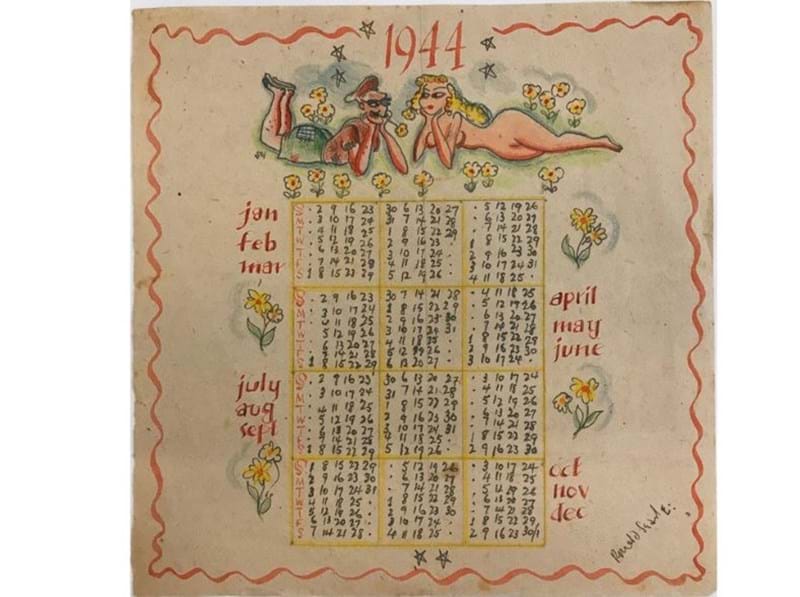 1944
jan
feb
mar
S 2 9 16 23 30 6 13 20 27 5 12 19 26
M 3 10 17 24 31 7 14 21 28 6 13 20 27
T 4 11 18 25 1 8 15 22 29 7 14 21 28
W 5 12 19 26 2 9 16 23 1 8 15 22 29
T 6 13 20 27 3 10 17 24 2 9 16 23 30
F 7 14 21 28 4 11 18 25 3 10 17 24 31
S 1 8 15 22 29 5 12 19 26 4 11 18 25
april
may
june
S 2 9 16 23 30 7 14 21 28 4 11 18 25
M 3 10 17 24 1 8 15 22 29 5 12 19 26
T 4 11 18 25 2 9 16 23 30 6 13 20 27
W 5 12 19 26 3 10 17 24 31 7 14 21 28
T 6 13 20 27 4 11 18 25 1 8 15 22 29
F 7 14 21 28 5 12 19 26 2 9 16 23 30
S 1 8 15 22 29 6 13 20 27 3 10 17 24
july
aug
sept
S 2 9 16 23 30 6 13 20 27 3 10 17 24
M 3 10 17 24 31 7 14 21 28 4 11 18 25
T 4 11 18 25 1 8 15 22 29 5 12 19 26
W 5 12 19 26 2 9 16 23 30 6 13 20 27
T 6 13 20 27 3 10 17 24 31 7 14 21 28
F 7 14 21 28 4 11 18 25 1 8 15 22 29
S 1 8 15 22 29 5 12 19 26 2 9 16 23 30
oct
nov
dec
S 1 8 15 22 29 5 12 19 26 3 10 17 24
M 2 9 16 23 30 6 13 20 27 4 11 18 25
T 3 10 17 24 31 7 14 21 28 5 12 19 26
W 4 11 18 25 1 8 15 22 29 6 13 20 27
T 5 12 19 26 2 9 16 23 30 7 14 21 28
F 6 13 20 27 3 10 17 24 1 8 15 22 29
S 7 14 21 28 4 11 18 25 2 9 16 23 30/1
Ronald Searle